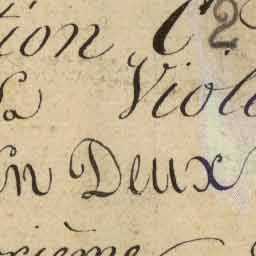 tion C. 2
la Viole
En Deux
rième